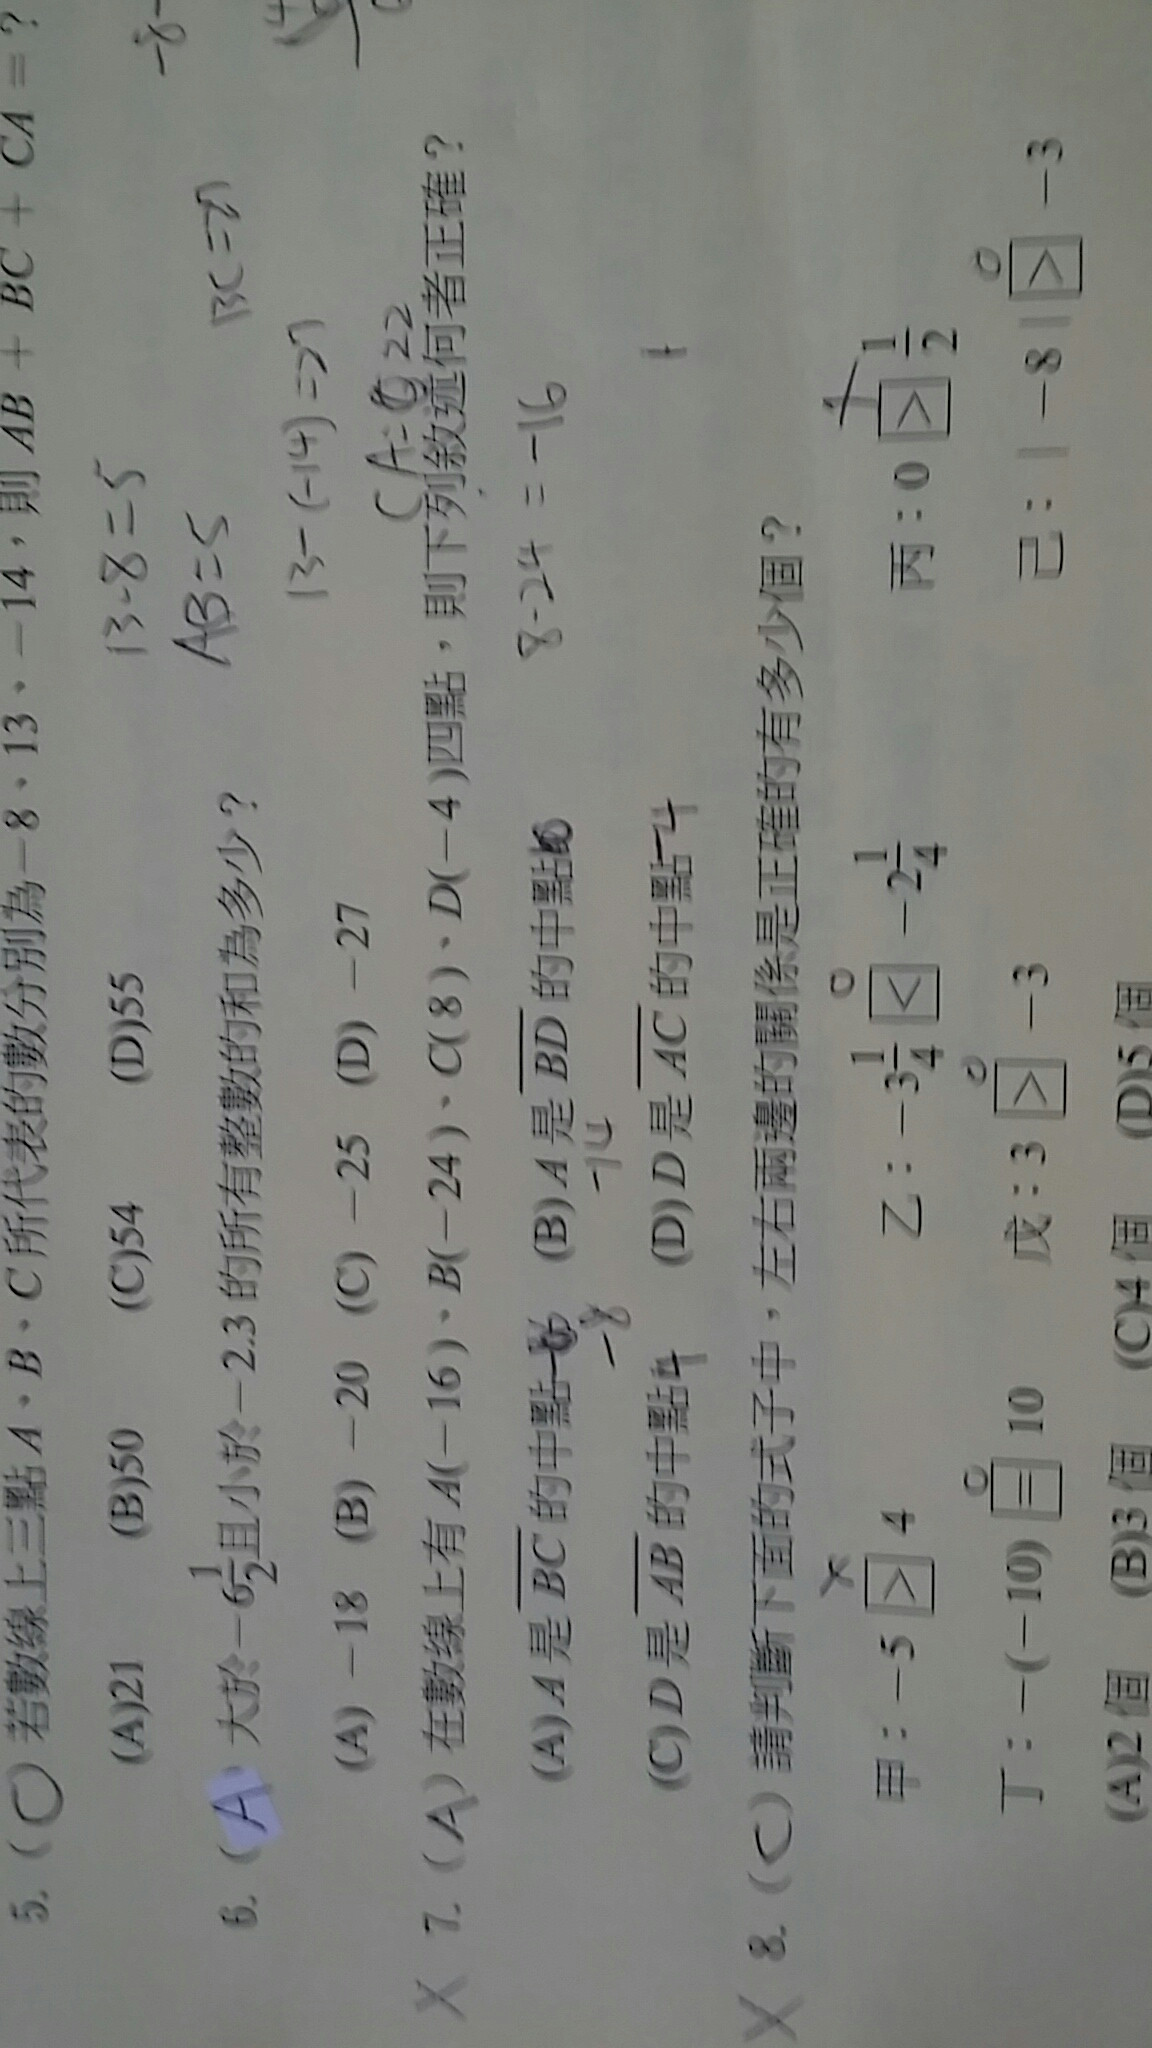 5. (C) 若數線上三點 A、B、C 所代表的數分別為 -8、13、-14，則 AB + BC + CA = ?
(A)21 (B)50 (C)54 (D)55
13-8=5
AB=5
BC=27
6. (A) 大於 -6 1/2 且小於 -2.3 的所有整數的和為多少？
13-(-14)=27
(A) -18 (B) -20 (C) -25 (D) -27
CA=22
X 7. (A) 在數線上有 A(-16)、B(-24)、C(8)、D(-4)四點，則下列敘述何者正確？
8-24=-16
(A) A 是 BC 的中點 (B) A 是 BD 的中點
-8 -14
(C) D 是 AB 的中點 (D) D 是 AC 的中點-4
X 8. (C) 請判斷下面的式子中，左右兩邊的關係是正確的有多少個？
甲：-5 > 4 乙：-3 1/4 < -2 1/4 丙：0 > 1/2
丁：-(-10) = 10 戊：3 > -3 己：|-8| > -3
(A)2 個 (B)3 個 (C)4 個 (D)5 個